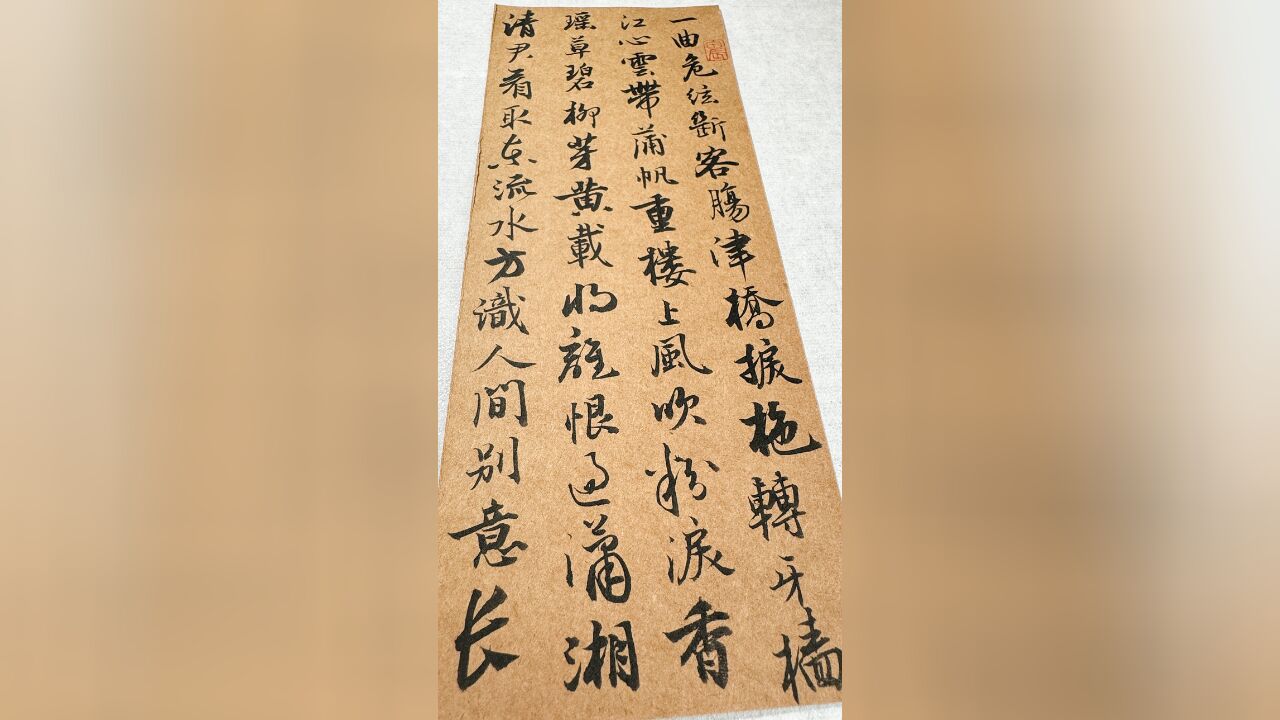 一曲危絃斷客腸津橋捩柂轉牙檣
江心雲帶蒲帆重樓上風吹粉淚香
瑶草碧柳芽黄載将離恨過瀟湘
请君看取東流水方識人間别意长